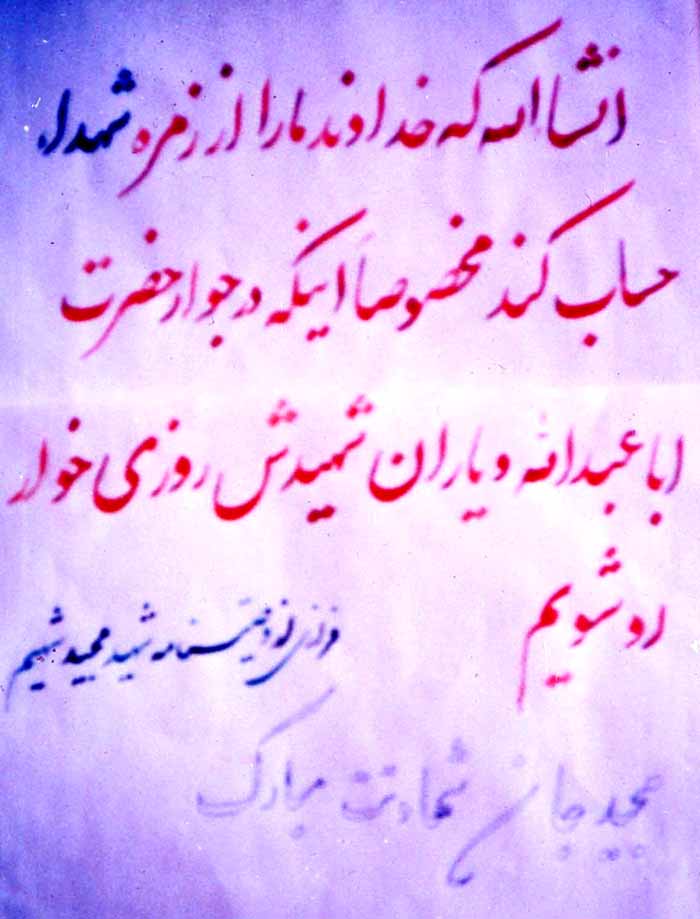 انشاالله که خداوند مارا از زمره شهداء
حساب کند مخصوصاً اینکه در جوار حضرت
ابا عبدالله و یاران شهیدش روزی خوار
او شویم
فرازی از وصیتنامه شهید مجید شمیم
مجید جان شهادتت مبارک